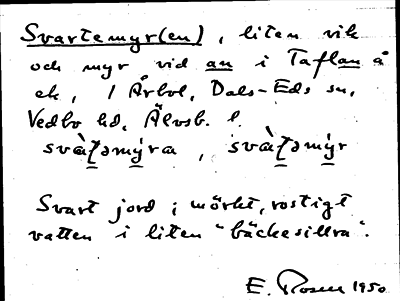 Svartemyr(en), liten vik
och myr vid an i Taflan å
ek, 1 Årbol, Dals-Eds sn,
Vedbo hd, Älvsb. l.
svàʈəmýra, svàʈəmýr
Svart jord i mörkt, rostigt
vatten i liten "bäckesillra".
E. Rosen 1950